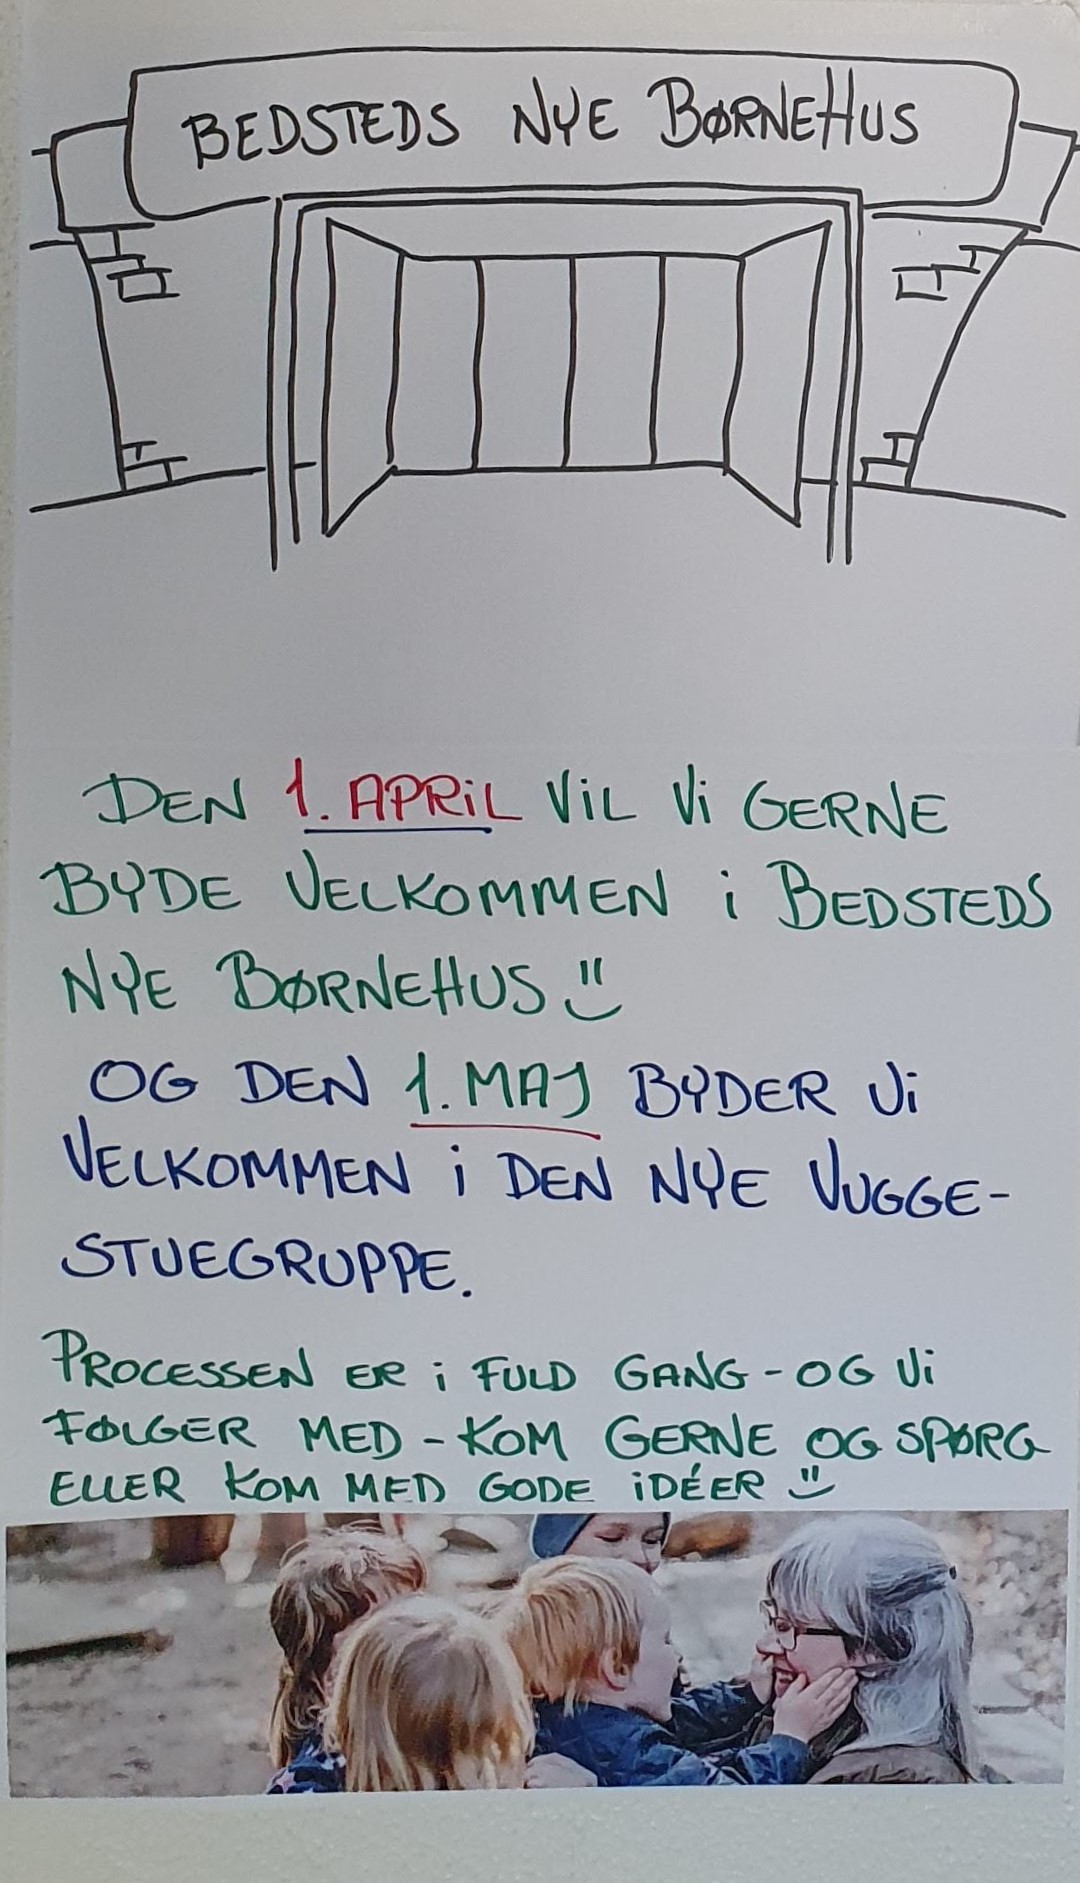 BEDSTEDS NYE BØRNEHUS
DEN 1. APRIL VIL VI GERNE
BYDE VELKOMMEN i BEDSTEDS
NYE BØRNEHUS
OG DEN 1. MAJ BYDER Vi
VELKOMMEN i DEN NYE VUGGE-
STUEGRUPPE.
PROCESSEN ER i FULD GANG - OG Vi
FØLGER MED - KOM GERNE OG SPØRG
ELLER KOM MED GODE iDÉER